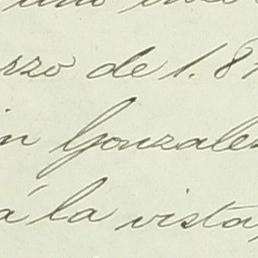 rzo de 1.8
in Gonzalez
á la vista,